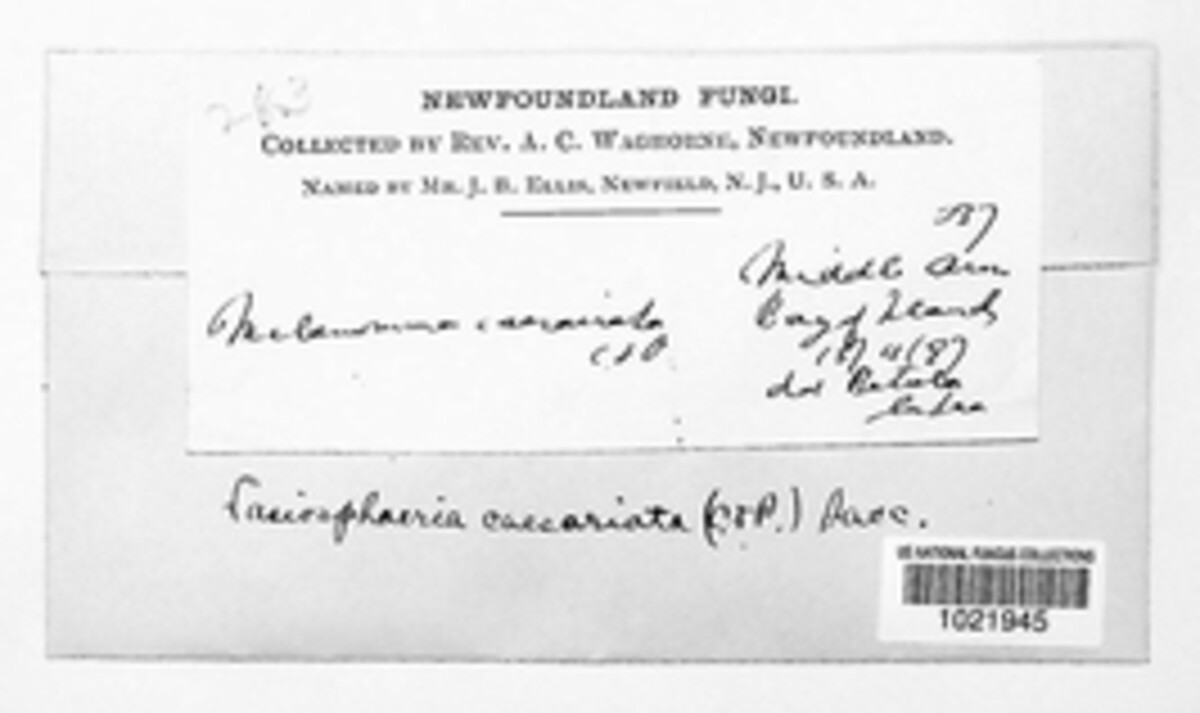 NEWFOUNDLAND FUNGI.
COLLECTED BY REV. A. C. WAGHORNE, NEWFOUNDLAND.
NAMED BY MR. J. B. ELLIS, NEWFIELD, N. J., U. S. A.
Middle Arm
Bay of Islands
Melanomma caesariata
C & P
Betula
Lasiosphaeria caesariata (C & P.) Sacc.
US NATIONAL FUNGUS COLLECTIONS
1021945